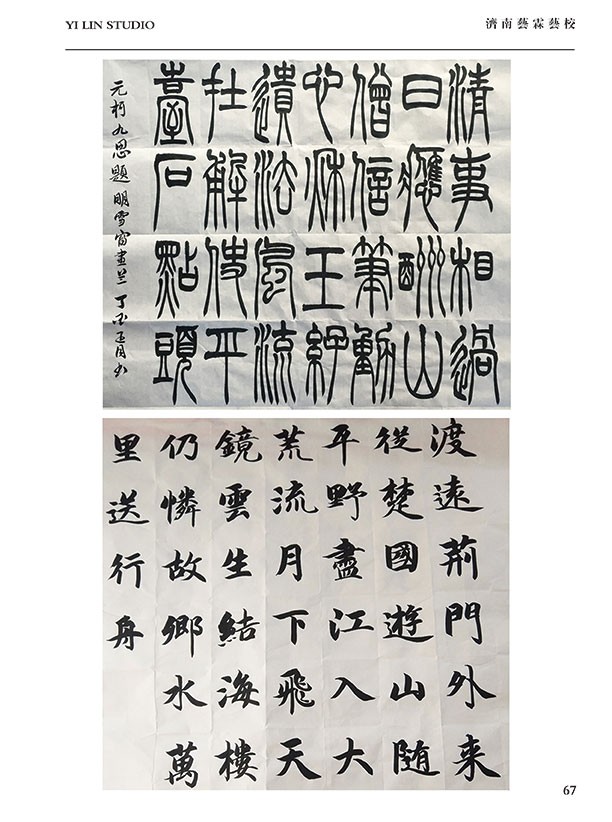 YI LIN STUDIO
濟南藝霖藝校
清事相過
日應酬山
僧信筆動
秌王
遺法風流
在解使平
臺石點頭
元柯九思題明雪窗畫兰 丁酉正月书
渡遠荊門外来
從楚國遊山随
平野盡江入大
荒流月下飛天
鏡雲生結海樓
仍憐故鄉水萬
里送行舟
67